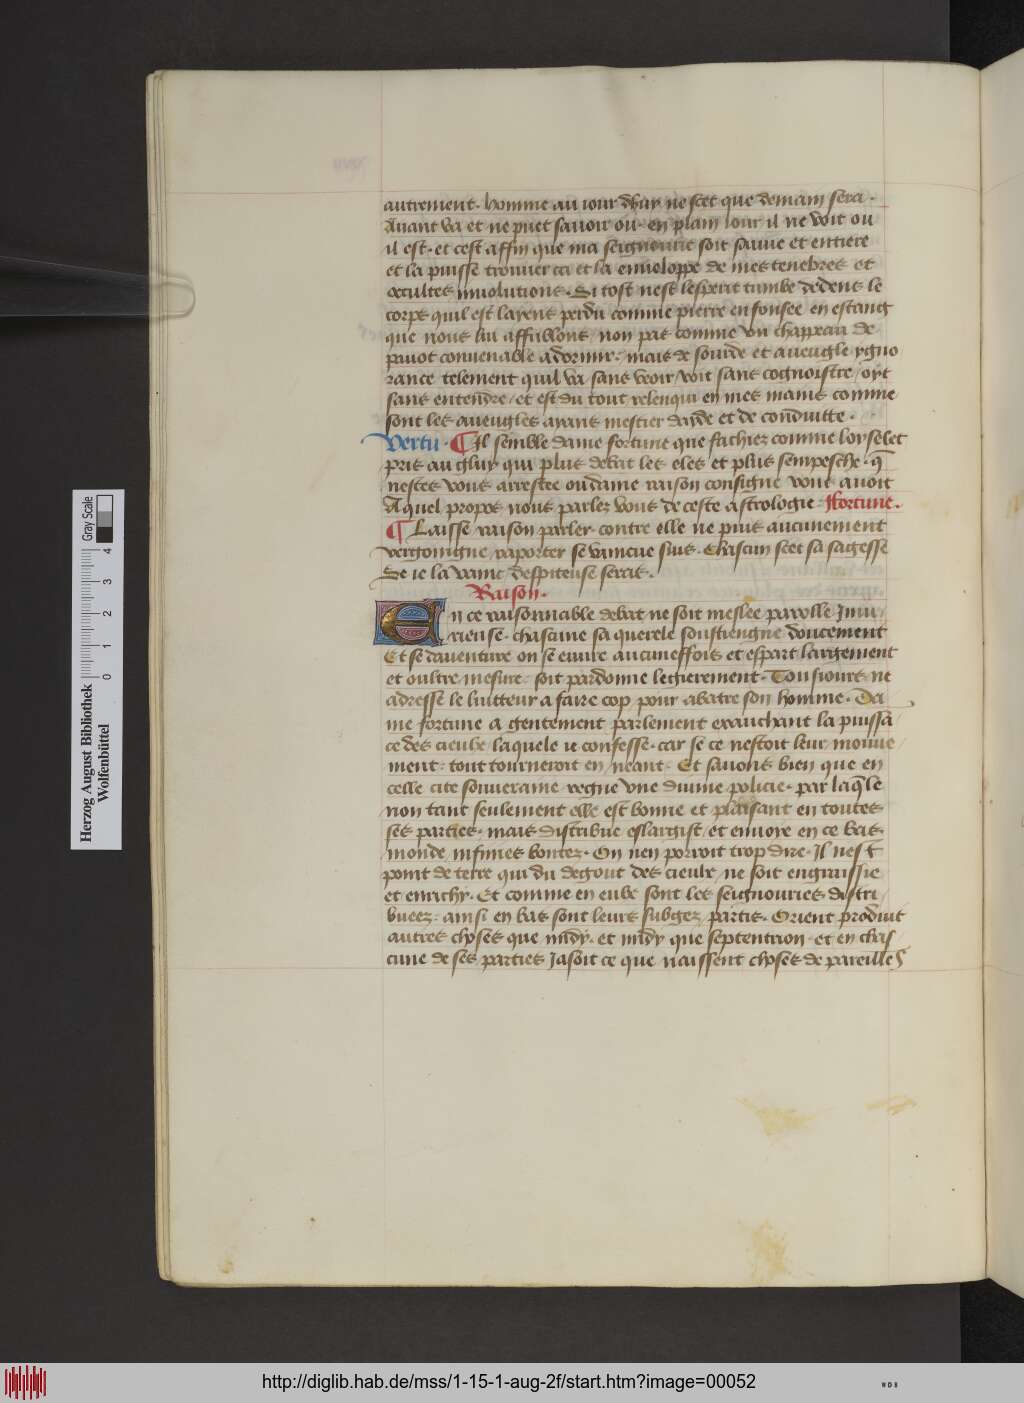 autrement. homme au iour dhuy ne scet que demain sera.
Auant va et ne puet sauoir ou. en plain iour il ne voit ou
il est. et cest affin que ma seignourie soit sauue et entiere
et la puisse trouuer ca et la enueloppe de mes tenebres et
occultes inuolutions. Si tost nest lesperit tumbe dedens le
corps quil est layens perdu comme pierre enfonsee en estang
que nous lui affublons non pas comme vn chappeau de
pauot conuenable a dormir. mais de sourde et aueugle ygno
rance telement quil va sans veoir voit sans cognoistre oyt
sans entendre et est du tout relenqui en mes mains comme
sont les aueugles ayans mestier dayde et de conduitte.
Vertu. ¶ Il semble dame fortune que fachiez comme loyselet
pris au gluy qui plus debat les eles et plus sempesche. q̄
nestes vous arrestee ou dame raison consigne vous auoit
A quel propos nous parlez vous de ceste astrologie. Fortune.
¶ Laisse raison parler contre elle ne puis aucunement
vergoingne raporter se vaincue suis. Chascun scet sa sagesse
Se ie la vainc despiteuse serait.
Raison.
En ce raisonnable debat ne soit meslee parolle Iniu
rieuse. chascune sa querele soustiengne doucement
Et se dauenture on se enure aucuneffois et espart largement
et oultre mesure. soit pardonne legierement. Tousiours ne
adresse le luitteur a faire cop pour abatre son homme. Da
me fortune a gentement parlement exauchant la puissā
ce des cieulx laquele ie confesse. car se ce nestoit leur mouue
ment. tout tourneroit en neant. Et sauons bien que en
celle cite souueraine regne vne diuine policie. par laq̄le
non tant seulement elle est bonne et plaisant en toutes
ses parties. mais distribue eslargist et enuoye en ce bas
monde infinies bontez. On nen porroit trop dire. Il nest
point de terre qui du degout des cieulx ne soit engraissie
et enrichy. Et comme en eulx sont les seignouries distri
buees. ainsi en bas sont leurs subgez partis. Orient produit
autres choses que midy. et midy que septentrion. et en chas
cune de ses parties Jasoit ce que naissent choses de pareilles
Herzog August Bibliothek
Wolfenbüttel
Gray Scale
0 1 2 3 4
http://diglib.hab.de/mss/1-15-1-aug-2f/start.htm?image=00052